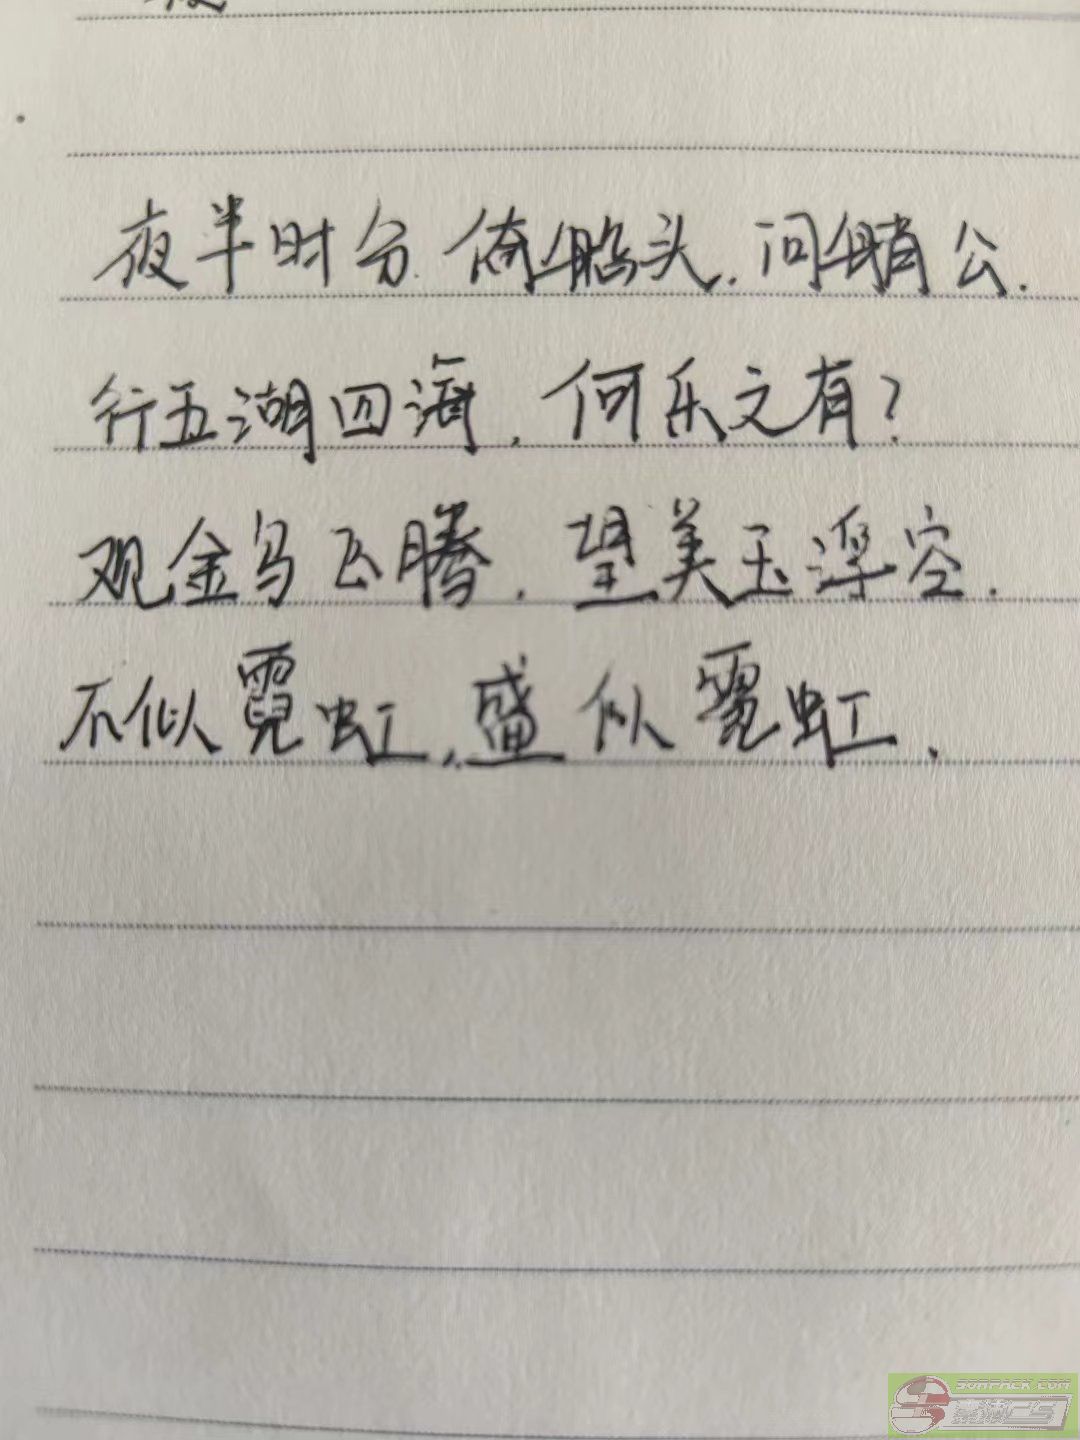 夜半时分.倚船头.问艄公.
行五湖四海,何乐之有?
观金乌飞腾,望美玉浮空.
不似霓虹,盛似霓虹.
SORPACK.COM
CS